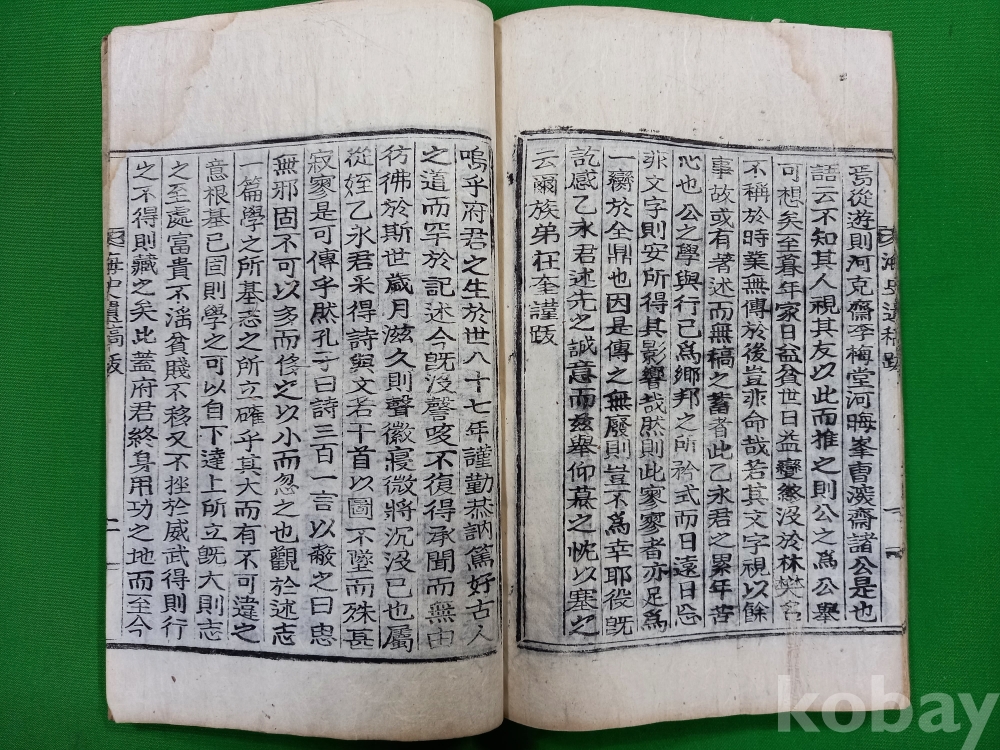 焉從遊則河克齋李梅堂河晦峯曹深齋諸公是也
語云不知其人視其友以此而推之則公之爲公擧
可想矣至暮年家日益貧世日益變歛沒於林樊名
不稱於時業無傳於後豈非命哉若其文字視以餘
事故或有著述而無稿之蓄者此乙永君之累年苦
心也公之學與行已爲鄕邦之所衿式而日遠日忘
非文字則安所得其影響哉然則此寥寥者亦足爲
一臠於全鼎也因是傳之無廢則豈不爲幸耶役旣
訖感乙永君述先之誠意而玆擧仰慕之忱以塞之
云爾族弟在奎謹跋
嗚乎府君之生於世八十七年謹勤恭訥篤好古人
之道而罕於記述今旣沒謦咳不復得承聞而無由
彷彿於斯世歲月滋久則聲徽寢微將沉沒已也屬
從姪乙永君采得詩與文若干首以圖不墜而殊甚
寂寥是可傳乎然孔子曰詩三百一言以蔽之曰思
無邪固不可以多而侈之以小而忽之也觀於述志
一篇學之所基志之所立確乎其大而有不可違之
意根基已固則學之可以自下達上所立旣大則志
之至處富貴不淫貧賤不移又不挫於威武得則行
之不得則藏之矣此蓋府君終身用功之地而至今
海史遺稿 跋 二
kobay